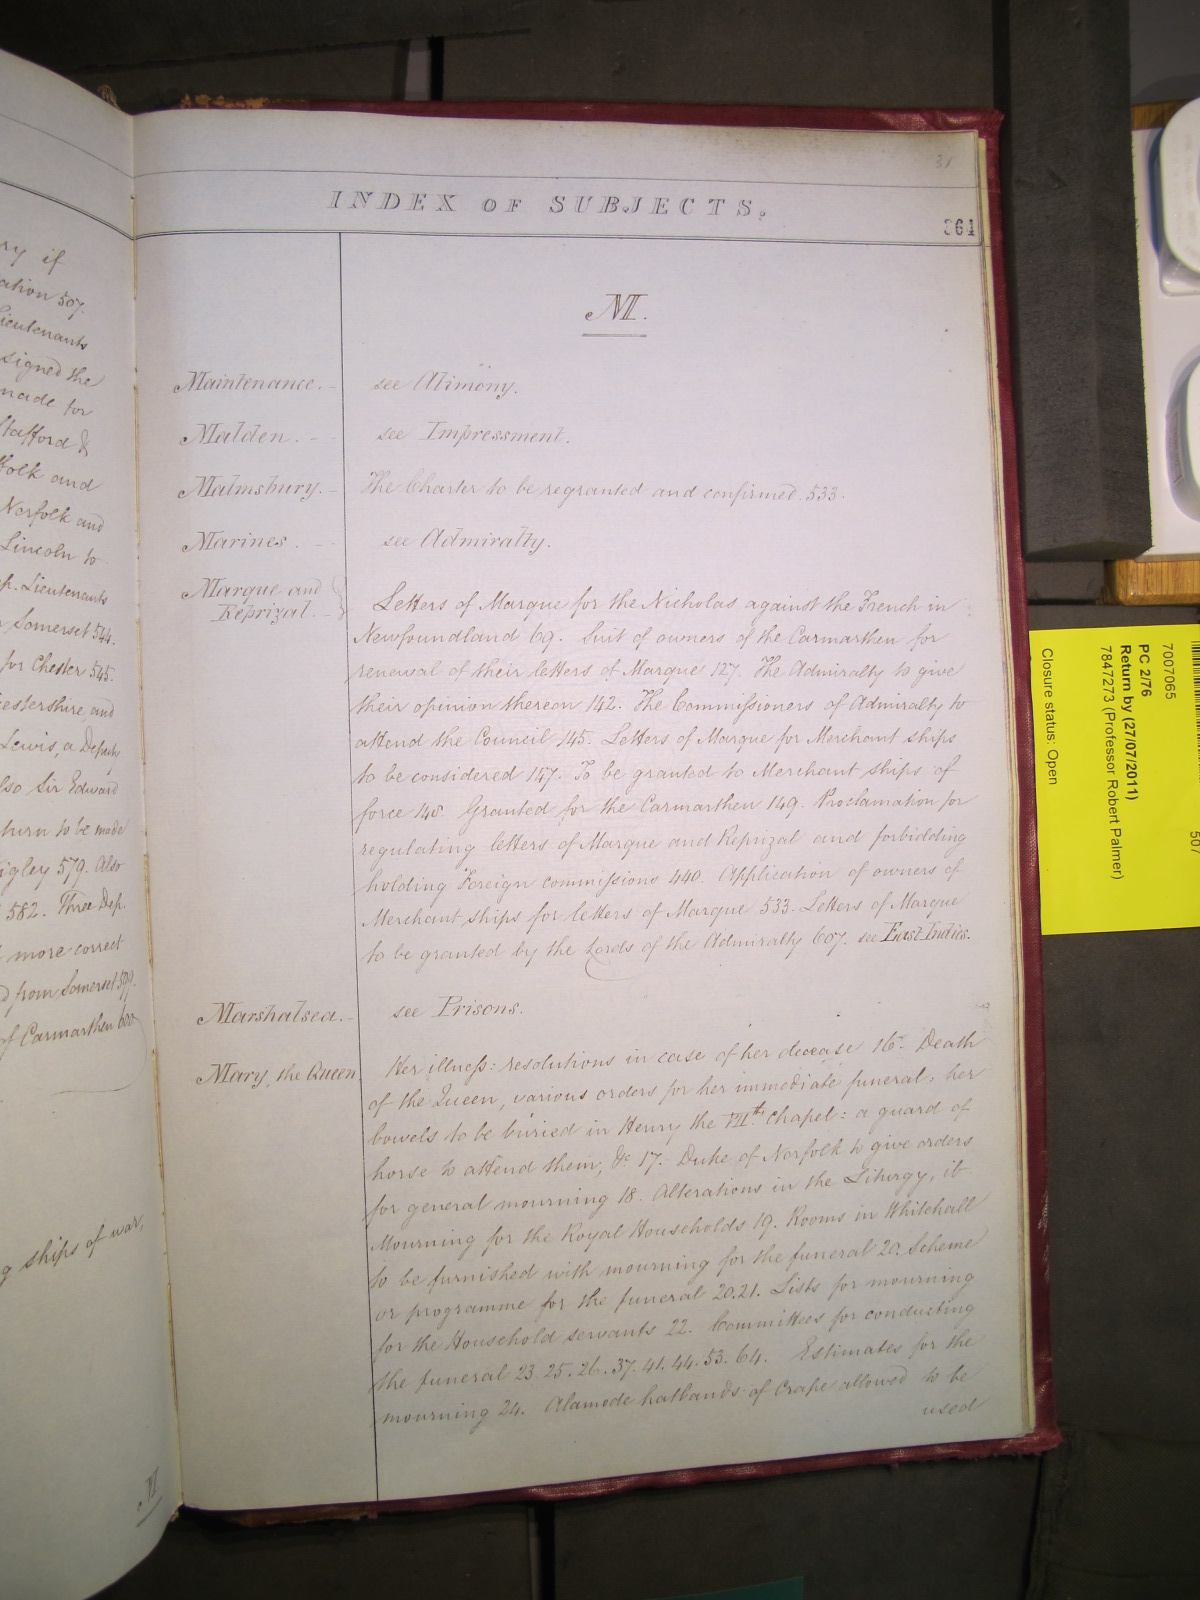 ry if
ation 507.
Lieutenants
signed the
made for
Stafford &
folk and
Norfolk and
Lincoln to
p. Lieutenants
Somerset 544.
for Chester 545.
cestershire and
Lewis, a Deputy
also Sir Edward
turn to be made
igley 579. Also
582. Three Dep.
more correct
d from Somerset 599.
of Carmarthen 600
g ships of war,
M
31
INDEX OF SUBJECTS.
361
M.
Maintenance. - see Alimony.
Malden. - - see Impressment.
Malmsbury. - The Charter to be regranted and confirmed. 533.
Marines. - - see Admiralty.
Marque and
Reprizal. - Letters of Marque for the Nicholas against the French in
Newfoundland 69. Suit of owners of the Carmarthen for
renewal of their letters of Marque 127. The Admiralty to give
their opinion thereon 142. The Commissioners of Admiralty to
attend the Council 145. Letters of Marque for Merchant ships
to be considered 147. To be granted to Merchant ships of
force 148. Granted for the Carmarthen 149. Proclamation for
regulating letters of Marque and Reprizal and forbidding
holding Foreign commissions 440. Application of owners of
Merchant ships for letters of Marque 533. Letters of Marque
to be granted by the Lords of the Admiralty 607. see East Indies.
Marshalsea. - see Prisons.
Mary, the Queen Her illness: resolutions in case of her decease 16. Death
of the Queen, various orders for her immediate funeral: her
bowels to be buried in Henry the VIIth. chapel: a guard of
horse to attend them, &c 17. Duke of Norfolk to give orders
for general mourning 18. Alterations in the Liturgy, ib.
Mourning for the Royal Households 19. Rooms in Whitehall
to be furnished with mourning for the funeral 20. Scheme
or programme for the funeral 20.21. Lists for mourning
for the Household servants 22. Committees for conducting
the funeral 23. 25. 26. 37. 41. 44. 53. 64. Estimates for the
mourning 24. Alamode hatbands of Crape allowed to be
used
7007065
507
PC 2/76
Return by (27/07/2011)
7847273 (Professor Robert Palmer)
Closure status: Open